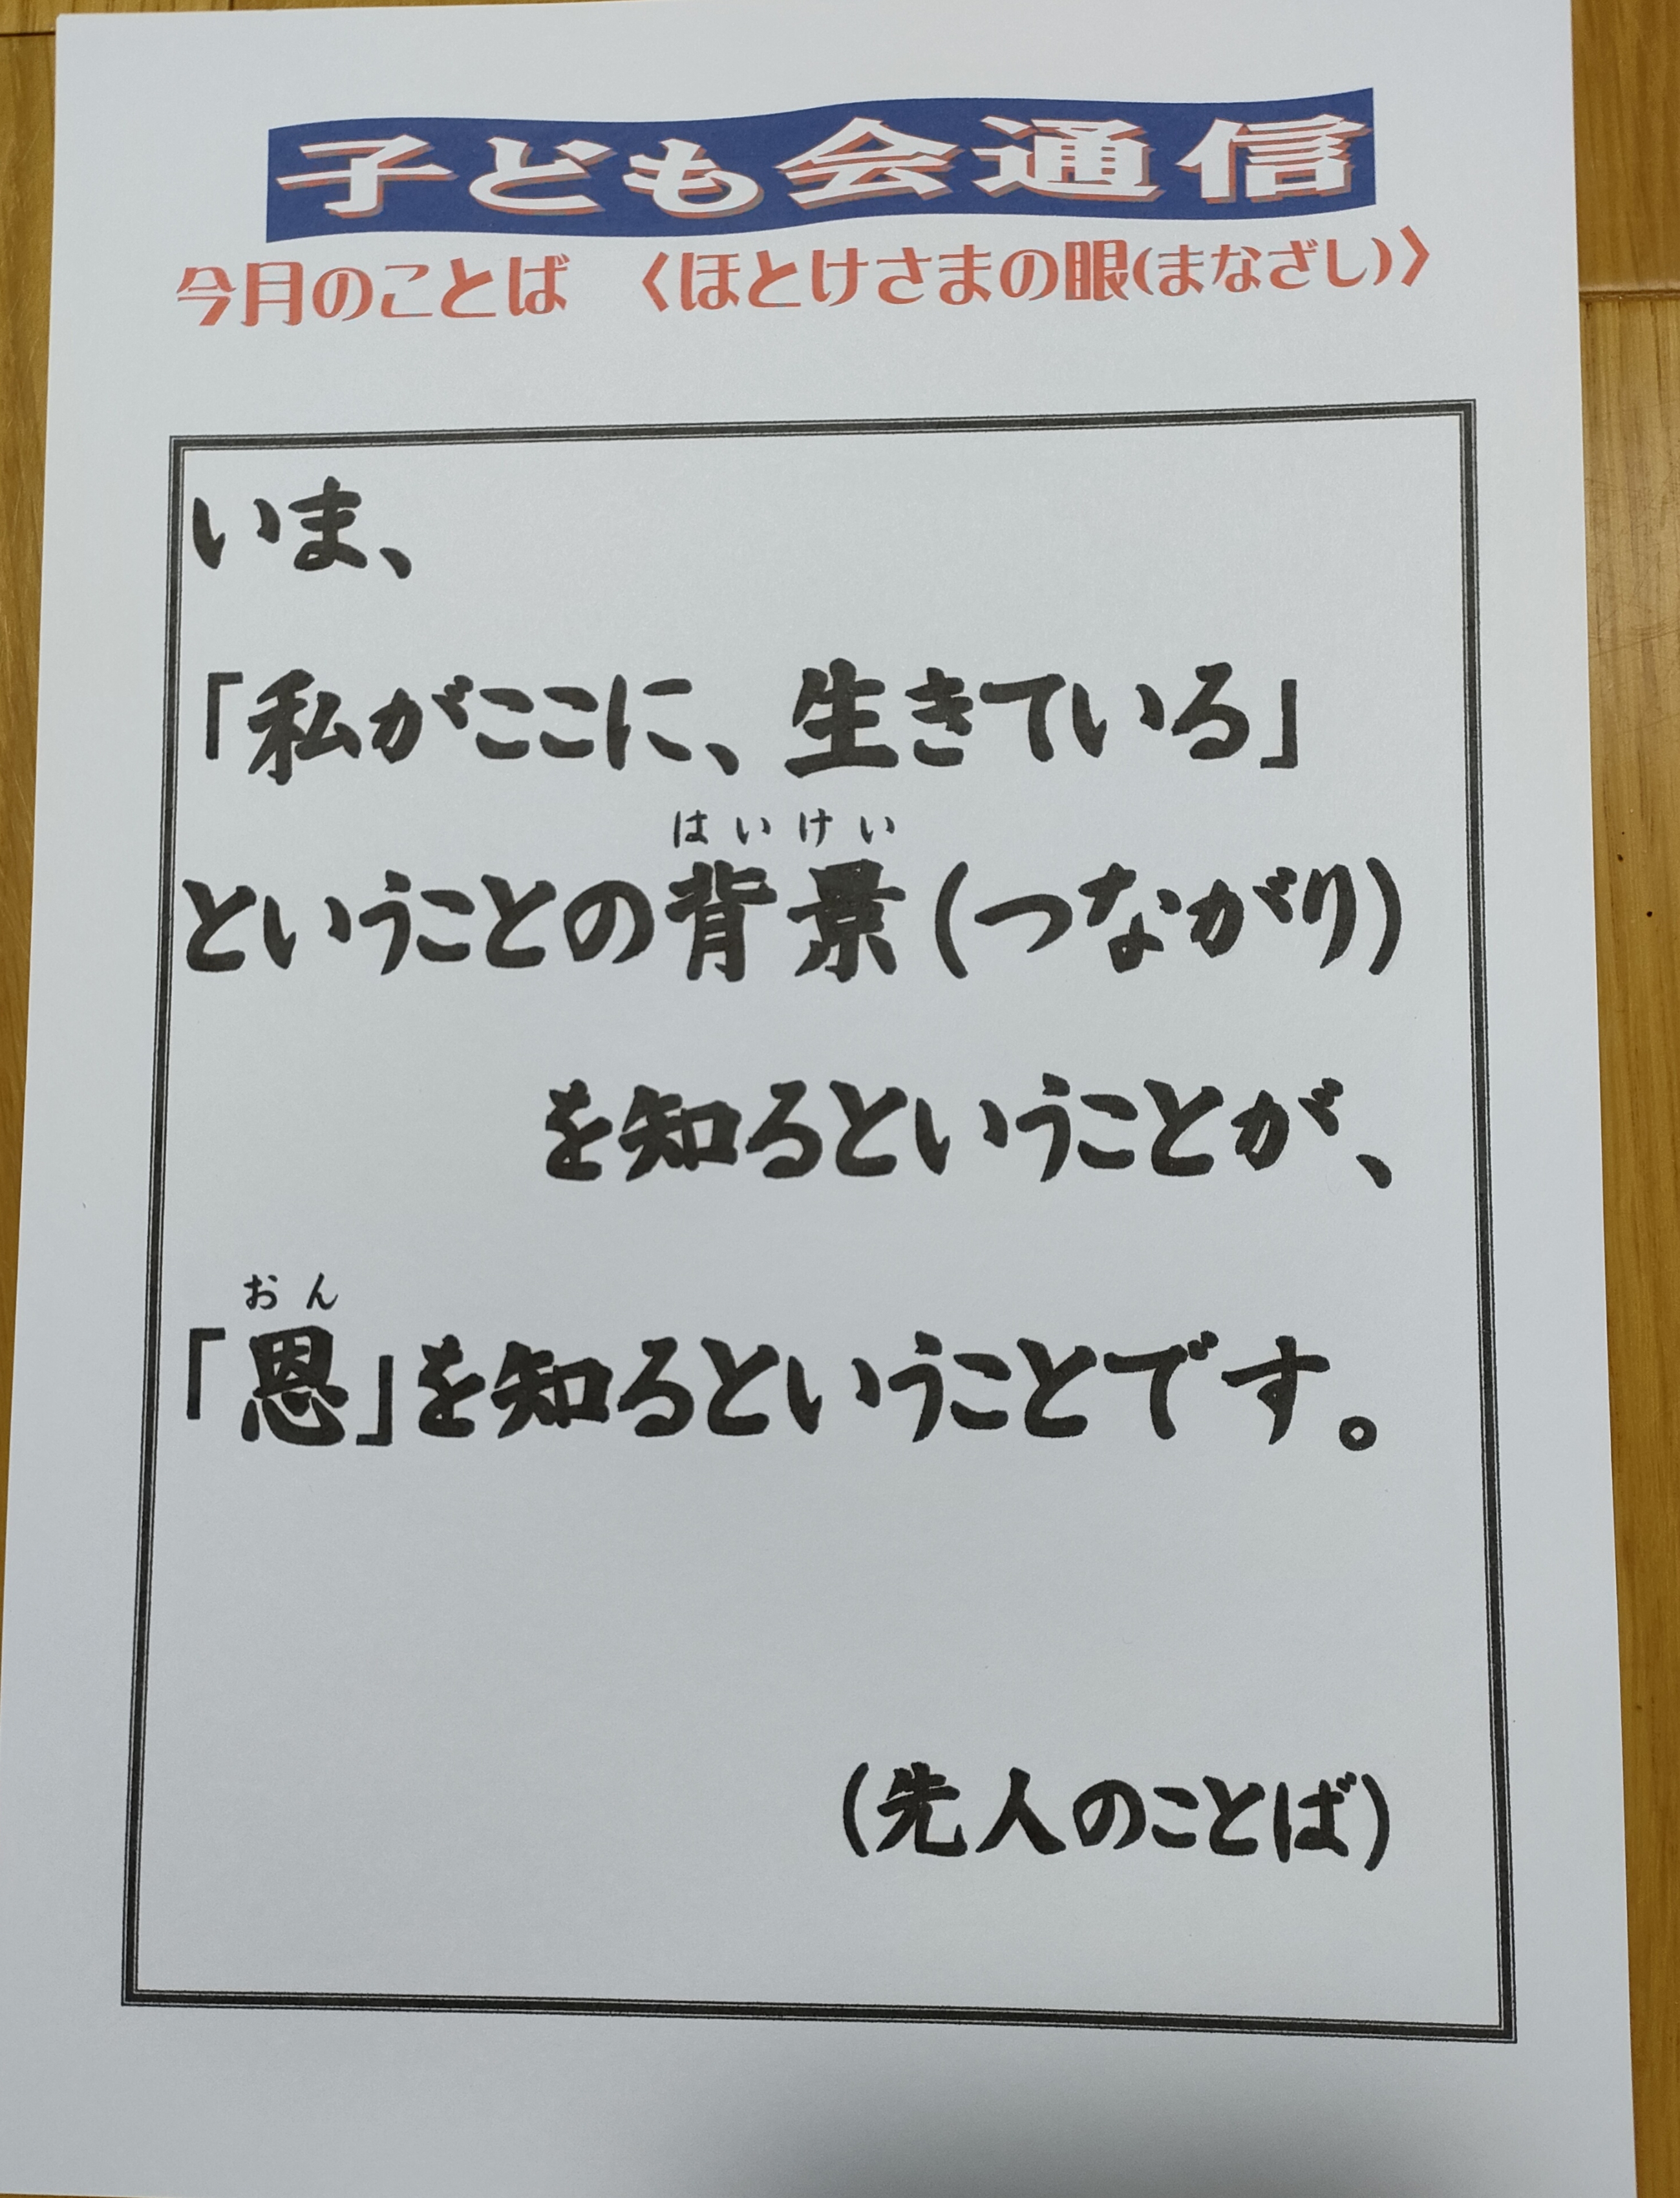 子ども会通信
今月のことば 〈ほとけさまの眼(まなざし)〉
いま、
「私がここに、生きている」
はいけい
ということの背景(つながり)
を知るということが、
おん
「恩」を知るということです。
(先人のことば)